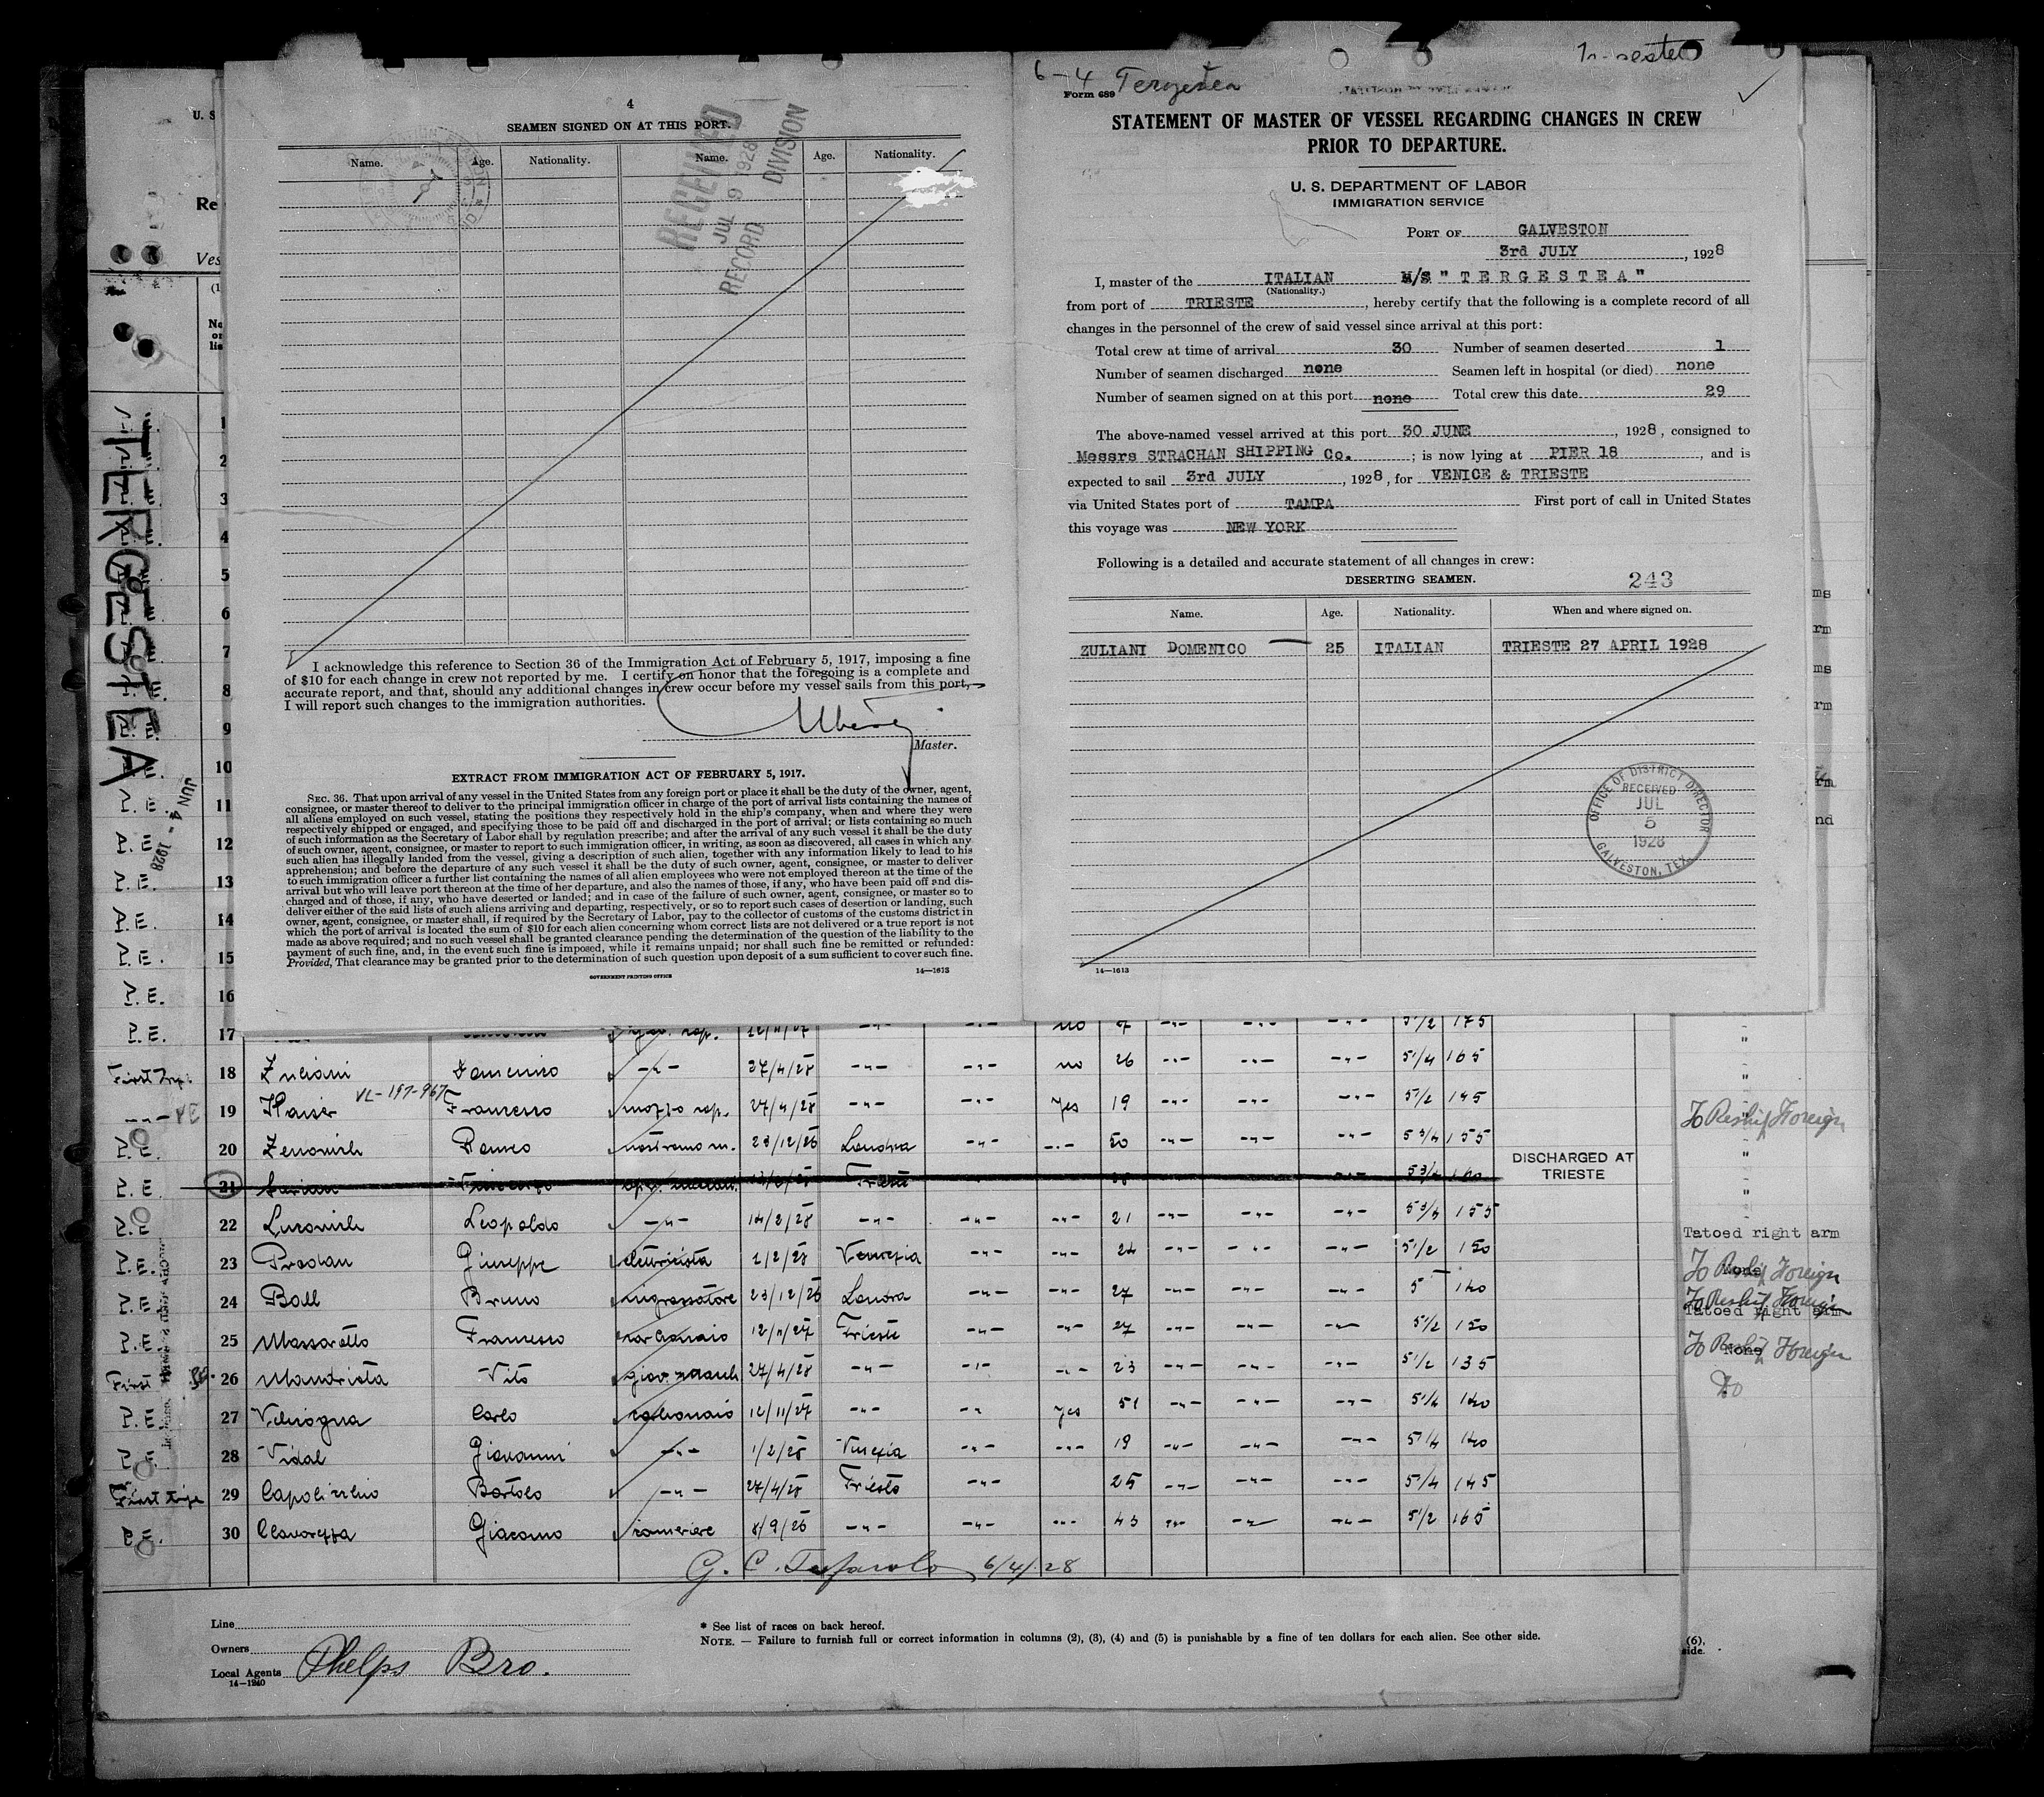 4
SEAMEN SIGNED ON AT THIS PORT.
Name. Age. Nationality. Name. Age. Nationality.
RECEIVED
JUL 9 1928
RECORD DIVISION
I acknowledge this reference to Section 36 of the Immigration Act of February 5, 1917, imposing a fine
of $10 for each change in crew not reported by me. I certify on honor that the foregoing is a complete and
accurate report, and that, should any additional changes in crew occur before my vessel sails from this port,
I will report such changes to the immigration authorities.
Master.
EXTRACT FROM IMMIGRATION ACT OF FEBRUARY 5, 1917.
SEC. 36. That upon arrival of any vessel in the United States from any foreign port or place it shall be the duty of the owner, agent,
consignee, or master thereof to deliver to the principal immigration officer in charge of the port of arrival lists containing the names of
all aliens employed on such vessel, stating the positions they respectively hold in the ship's company, when and where they were
respectively shipped or engaged, and specifying those to be paid off and discharged in the port of arrival; or lists containing so much
of such information as the Secretary of Labor shall by regulation prescribe; and after the arrival of any such vessel it shall be the duty
of such owner, agent, consignee, or master to report to such immigration officer, in writing, as soon as discovered, all cases in which any
such alien has illegally landed from the vessel, giving a description of such alien, together with any information likely to lead to his
apprehension; and before the departure of any such vessel it shall be the duty of such owner, agent, consignee, or master to deliver
to such immigration officer a further list containing the names of all alien employees who were not employed thereon at the time of the
arrival but who will leave port thereon at the time of her departure, and also the names of those, if any, who have been paid off and dis-
charged and of those, if any, who have deserted or landed; and in case of the failure of such owner, agent, consignee, or master so to
deliver either of the said lists of such aliens arriving and departing, respectively, or so to report such cases of desertion or landing, such
owner, agent, consignee, or master shall, if required by the Secretary of Labor, pay to the collector of customs of the customs district in
which the port of arrival is located the sum of $10 for each alien concerning whom correct lists are not delivered or a true report is not
made as above required; and no such vessel shall be granted clearance pending the determination of the question of the liability to the
payment of such fine, and, in the event such fine is imposed, while it remains unpaid; nor shall such fine be remitted or refunded:
Provided, That clearance may be granted prior to the determination of such question upon deposit of a sum sufficient to cover such fine.
GOVERNMENT PRINTING OFFICE 14—1613
6-4 Tergestea
Form 689
STATEMENT OF MASTER OF VESSEL REGARDING CHANGES IN CREW
PRIOR TO DEPARTURE.
U. S. DEPARTMENT OF LABOR
IMMIGRATION SERVICE
PORT OF GALVESTON
3rd JULY, 1928
I, master of the ITALIAN M/S "TERGESTEA"
(Nationality.)
from port of TRIESTE, hereby certify that the following is a complete record of all
changes in the personnel of the crew of said vessel since arrival at this port:
Total crew at time of arrival 30 Number of seamen deserted 1
Number of seamen discharged none Seamen left in hospital (or died) none
Number of seamen signed on at this port none Total crew this date 29
The above-named vessel arrived at this port 30 JUNE, 1928, consigned to
Messrs STRACHAN SHIPPING Co. ; is now lying at PIER 18, and is
expected to sail 3rd JULY, 1928, for VENICE & TRIESTE
via United States port of TAMPA First port of call in United States
this voyage was NEW YORK
Following is a detailed and accurate statement of all changes in crew:
DESERTING SEAMEN. 243
Name. Age. Nationality. When and where signed on.
ZULIANI DOMENICO 25 ITALIAN TRIESTE 27 APRIL 1928
OFFICE OF DISTRICT DIRECTOR
RECEIVED
JUL
5
1928
GALVESTON, TEX.
14—1613
TERGESTEA
JUN 4 - 1928
U. S
Re
Ves
1
2
3
4
5
6
7
8
9
10
P.E. 11
P.E. 12
P.E. 13
P.E. 14
P.E. 15
P.E. 16
P.E. 17 12/11/27 no 5 1/2 175
18 Zuliani Domenico 27/4/28 no 26 5 1/4 165
VL-197-967
19 Francesco mozzo 27/4/28 yes 19 5 1/2 145 To Reship Foreign
P.E. 20 23/12/26 Londra 50 5 3/4 155
P.E. 21 Trieste 5 3/4 160 DISCHARGED AT TRIESTE
P.E. 22 Leopoldo 14/2/28 21 5 3/4 155
Tatoed right arm
P.E. 23 Prodan Giuseppe elettricista 1/2/28 Venezia 24 5 1/2 150 None To Reship Foreign
P.E. 24 Ball Bruno ingrassatore 23/12/26 Londra 27 5 140 To Reship Foreign
Tatoed right arm
P.E. 25 Francesco carbonaio 12/11/27 Trieste 27 5 1/2 150 None To Reship Foreign
First 26 Mandriota Vito 27/4/28 23 5 1/2 135 Do
P.E. 27 Carlo carbonaio 12/11/27 yes 51 5 1/4 140
P.E. 28 Vidal Giovanni 1/2/28 Venezia 19 5 1/4 140
First trip 29 Capolicchio Bortolo 27/4/28 Trieste 25 5 1/4 145
P.E. 30 Giacomo cameriere 8/9/26 43 5 1/2 165
6/4/28
Line
Owners
Local Agents Phelps Bro.
14—1240
* See list of races on back hereof.
NOTE. — Failure to furnish full or correct information in columns (2), (3), (4) and (5) is punishable by a fine of ten dollars for each alien. See other side.
(6),
side.